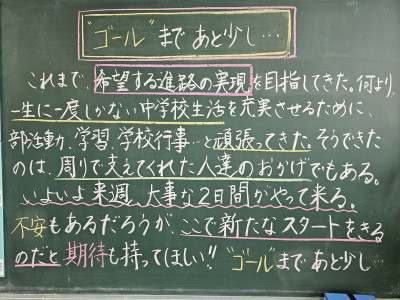 "ゴール"まであと少し…
これまで、希望する進路の実現を目指してきた。何より、
一生に一度しかない中学校生活を充実させるために、
部活動、学習、学校行事…と頑張ってきた。そうできた
のは、周りで支えてくれた人達のおかげでもある。
いよいよ来週、大事な2日間がやって来る。
不安もあるだろうが、ここで新たなスタートをきる
のだと期待も持ってほしい!! "ゴール"まであと少し…